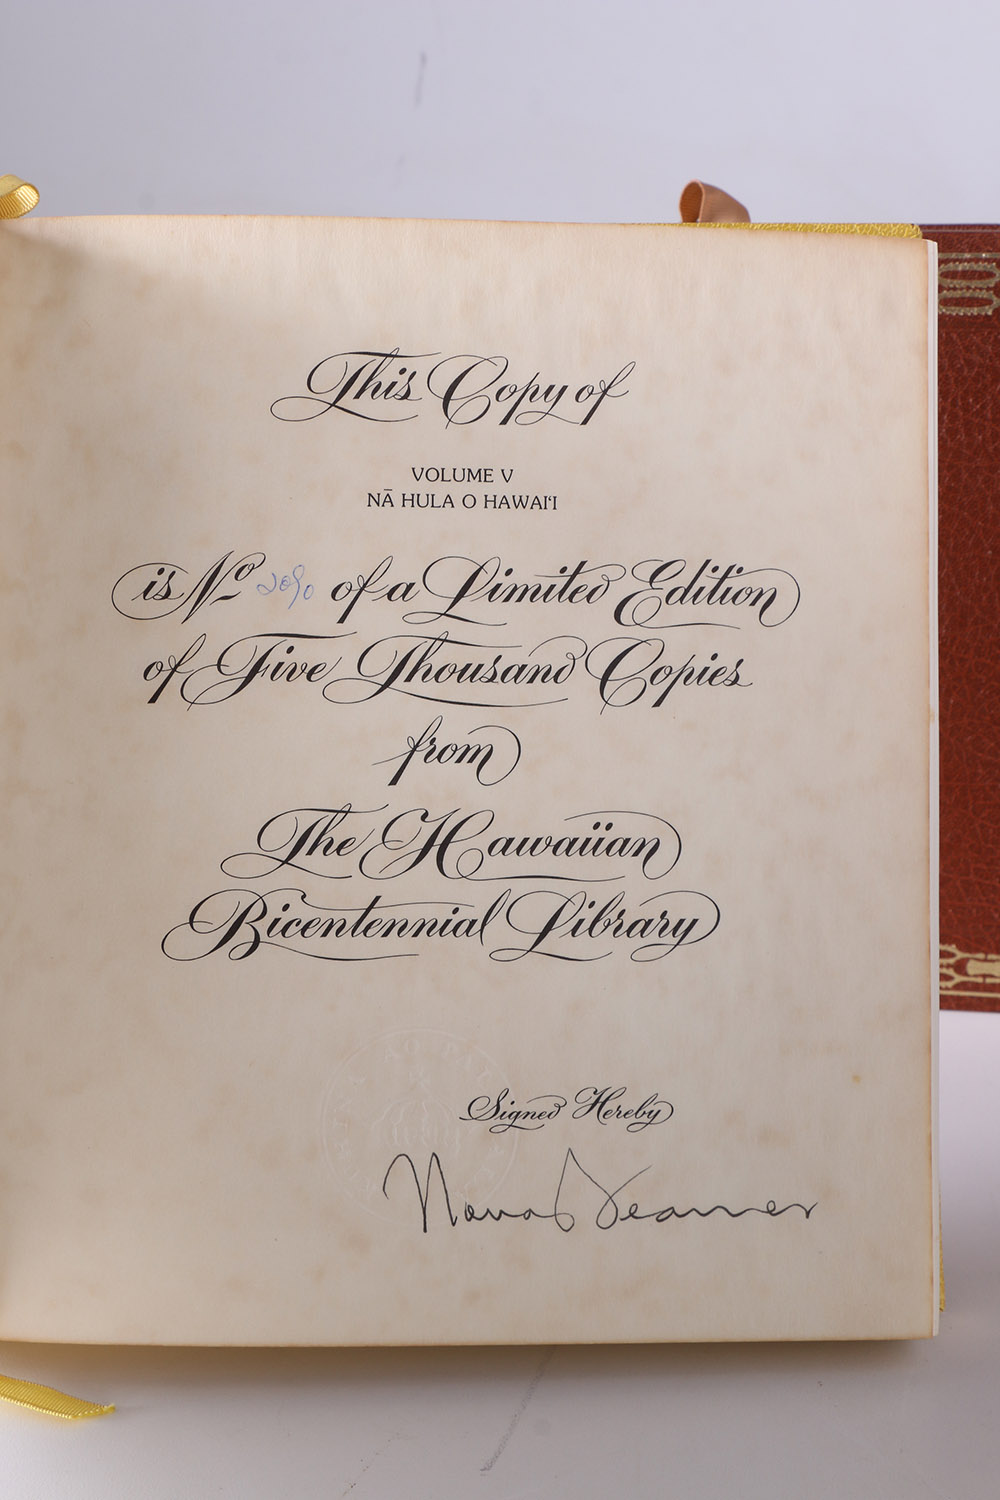 This Copy of
VOLUME V
NĀ HULA O HAWAIʻI
is No 2090 of a Limited Edition
of Five Thousand Copies
from
The Hawaiian
Bicentennial Library
Signed Hereby
Nona Beamer